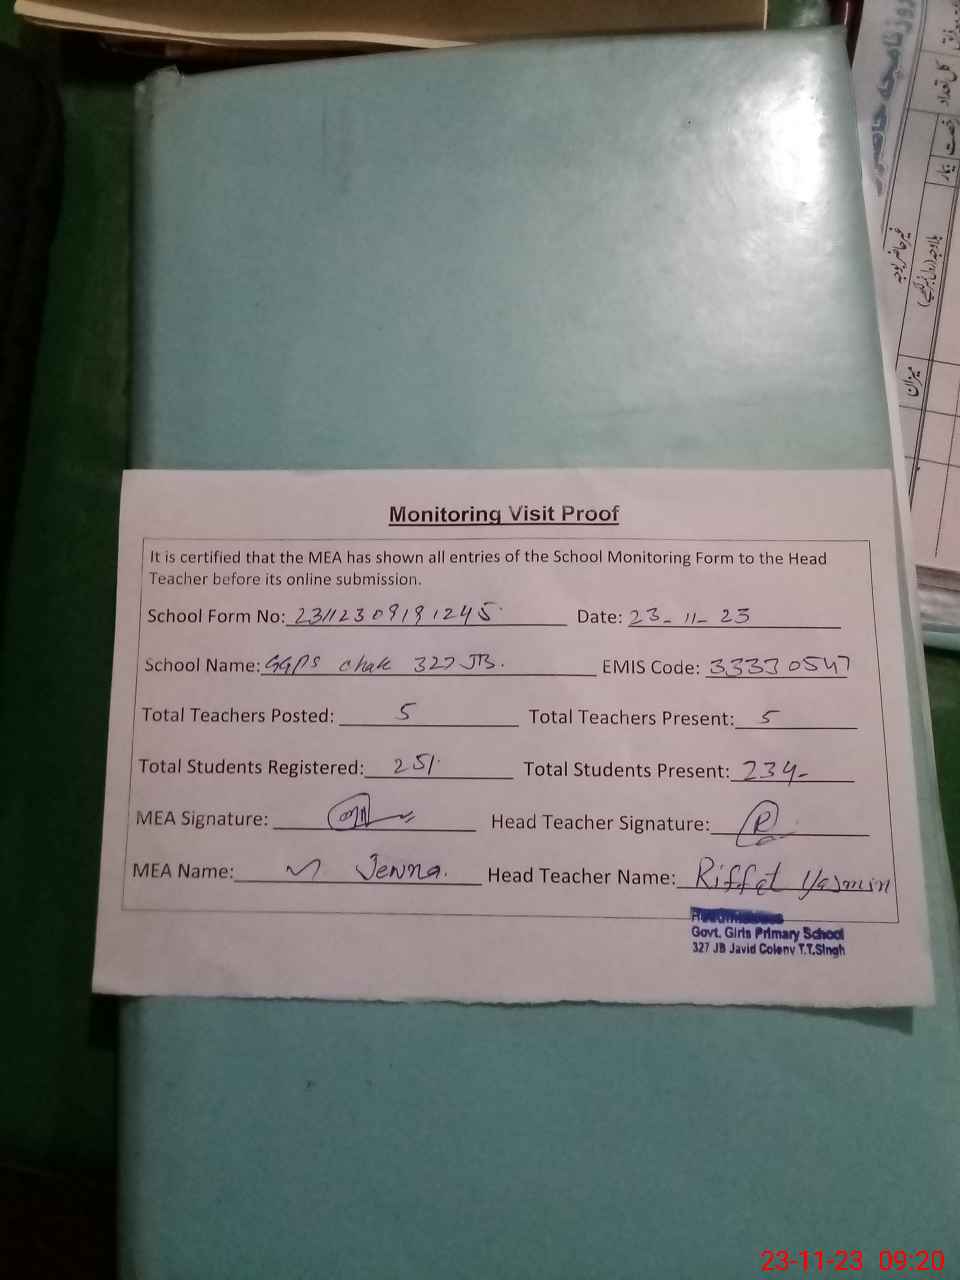 روزنامچہ حاضری
کل تعداد
رخصت
بیمار
غیر حاضر بوجہ
میزان
Monitoring Visit Proof
It is certified that the MEA has shown all entries of the School Monitoring Form to the Head
Teacher before its online submission.
School Form No: 23112309191245 Date: 23-11-23
School Name: GGPS chak 327 JB. EMIS Code: 33330547
Total Teachers Posted: 5 Total Teachers Present: 5
Total Students Registered: 251 Total Students Present: 234-
MEA Signature: Head Teacher Signature:
MEA Name: Head Teacher Name: Riffat Yasmin
Headmistress
Govt. Girls Primary School
327 JB Javid Colony T.T.Singh
23-11-23 09:20